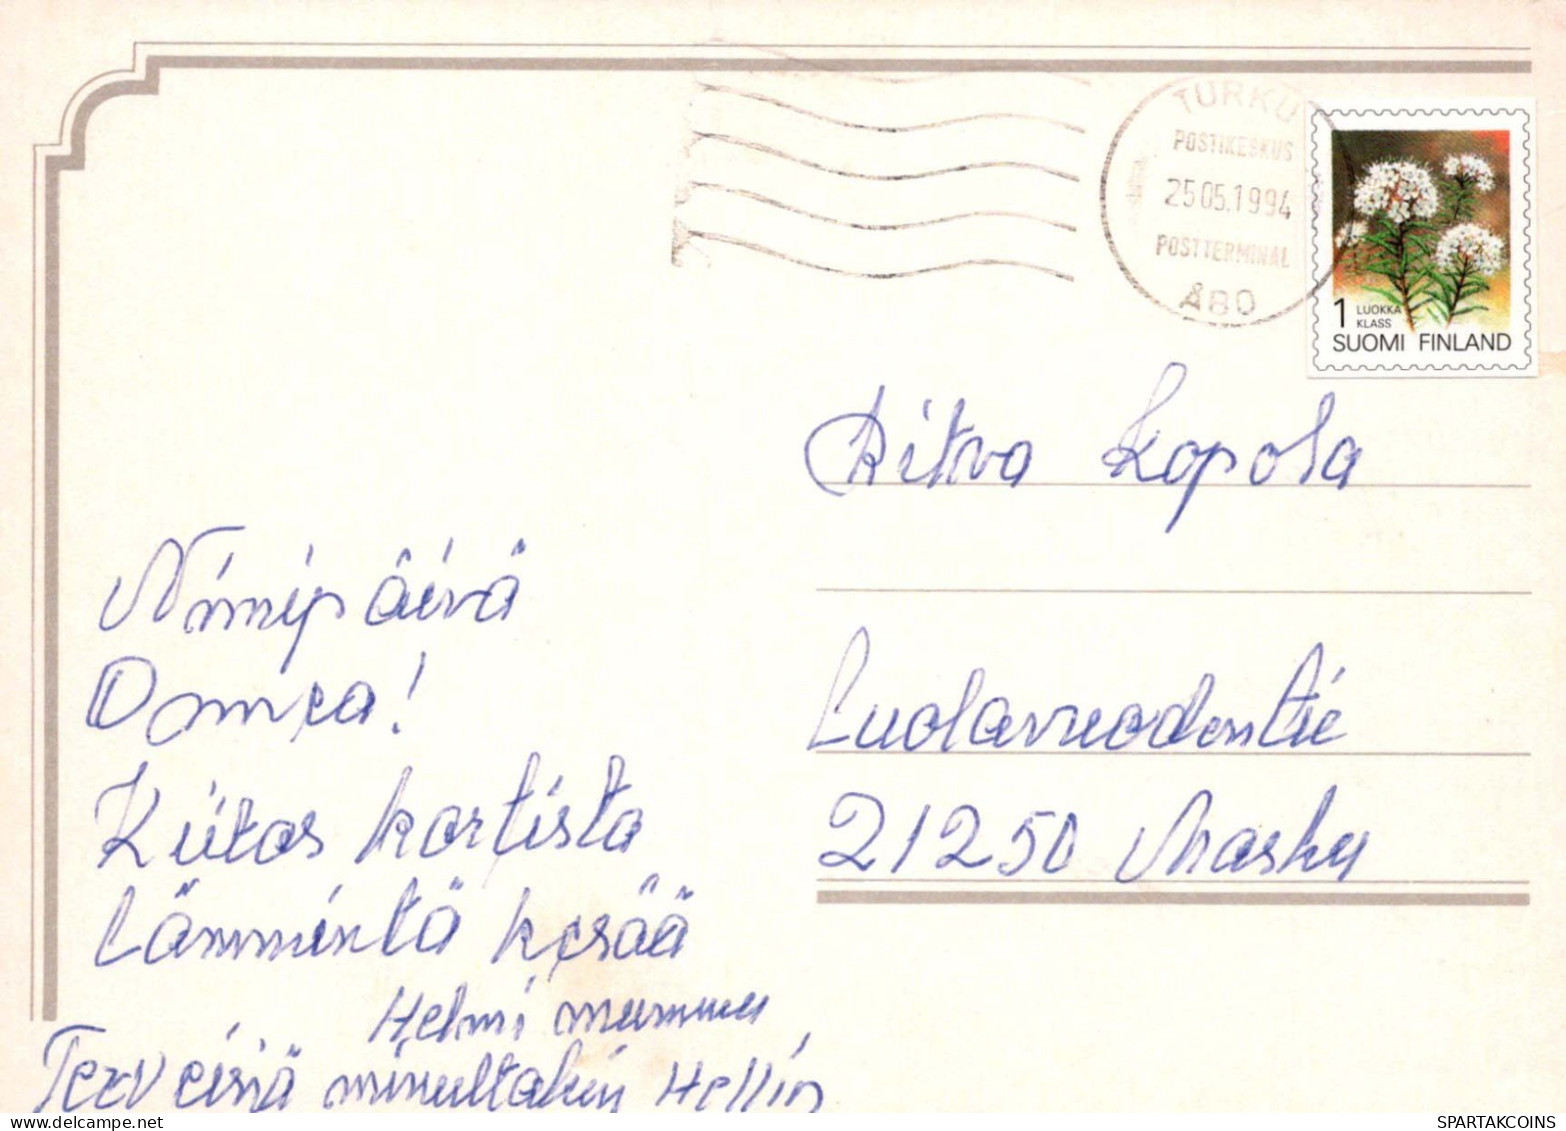 TURKU
POSTIKESKUS
25.05.1994
POSTTERMINAL
ÅBO
1 LUOKKA
KLASS
SUOMI FINLAND
Ritva Kopola
Luolavuodentie
21250 Masku
Nimipäivä
Onnea!
Kiitos kortista
Lämmintä kesää
Helmi mummu
Terveisiä minultakin Hellin
SPARTAKCOINS
WWW.SPARTAKCOINS.COM